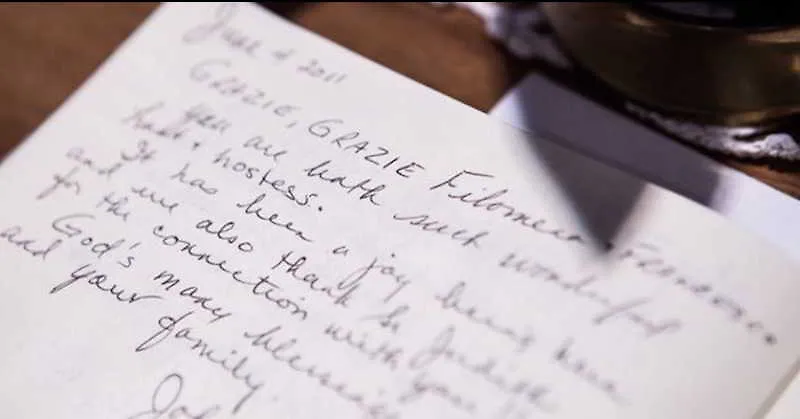 June 4 2011
GRAZIE, GRAZIE Filomena + FRANCESCO
you are both such wonderful
host + hostess.
It has been a joy being here
and we also thank
for the connection with you
God's many blessings
and your family.